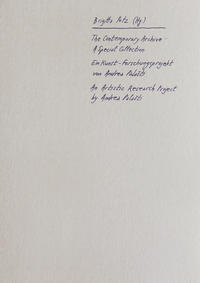 Brigitte Potz (Hg)
The Contemporary Archive –
A Special Collection
Ein Kunst-Forschungsprojekt
von Andrea Palašti
An Artistic Research Project
by Andrea Palašti